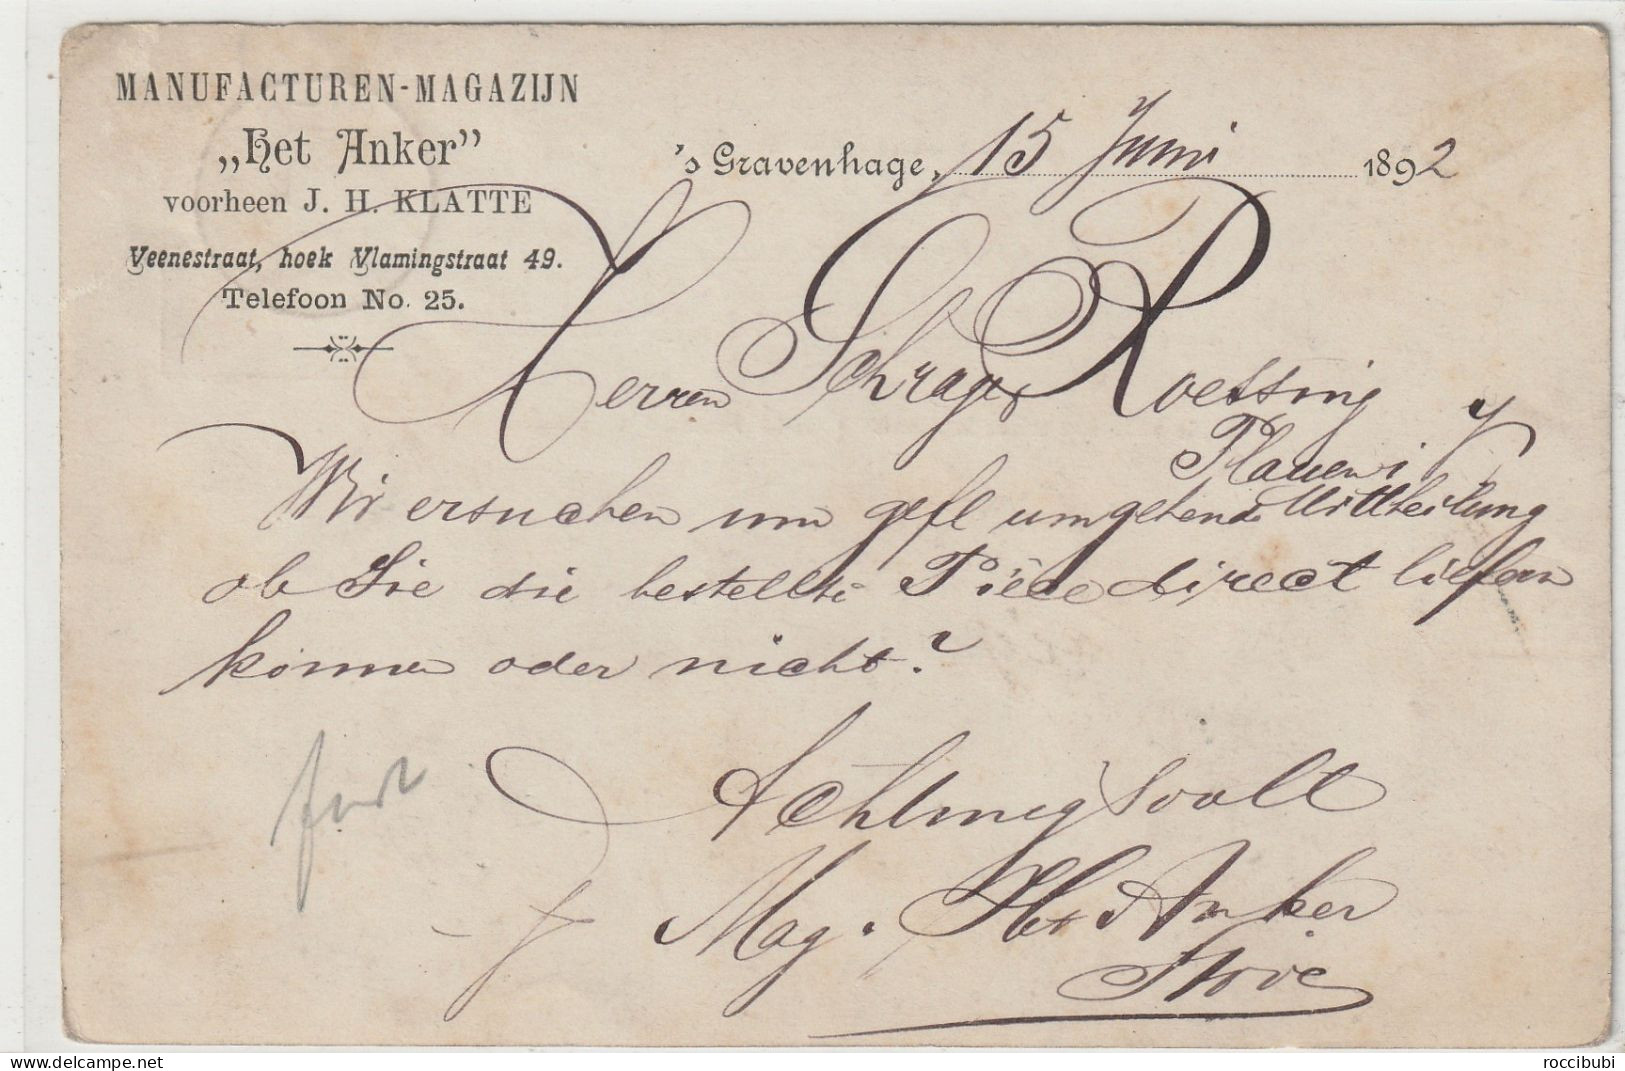 MANUFACTUREN-MAGAZIJN
„Het Anker”
voorheen J. H. KLATTE
Veenestraat, hoek Vlamingstraat 49.
Telefoon No. 25.
's Gravenhage, 15 Juni 1892
Herren Schrager Roessing
Plauen i/
Wir ersuchen um gefl umgehende Mittheilung
ob Sie die bestellte Pièce direct liefern
können oder nicht?
Achtungsvoll
Mag. Het Anker
delcampe.net
roccibubi